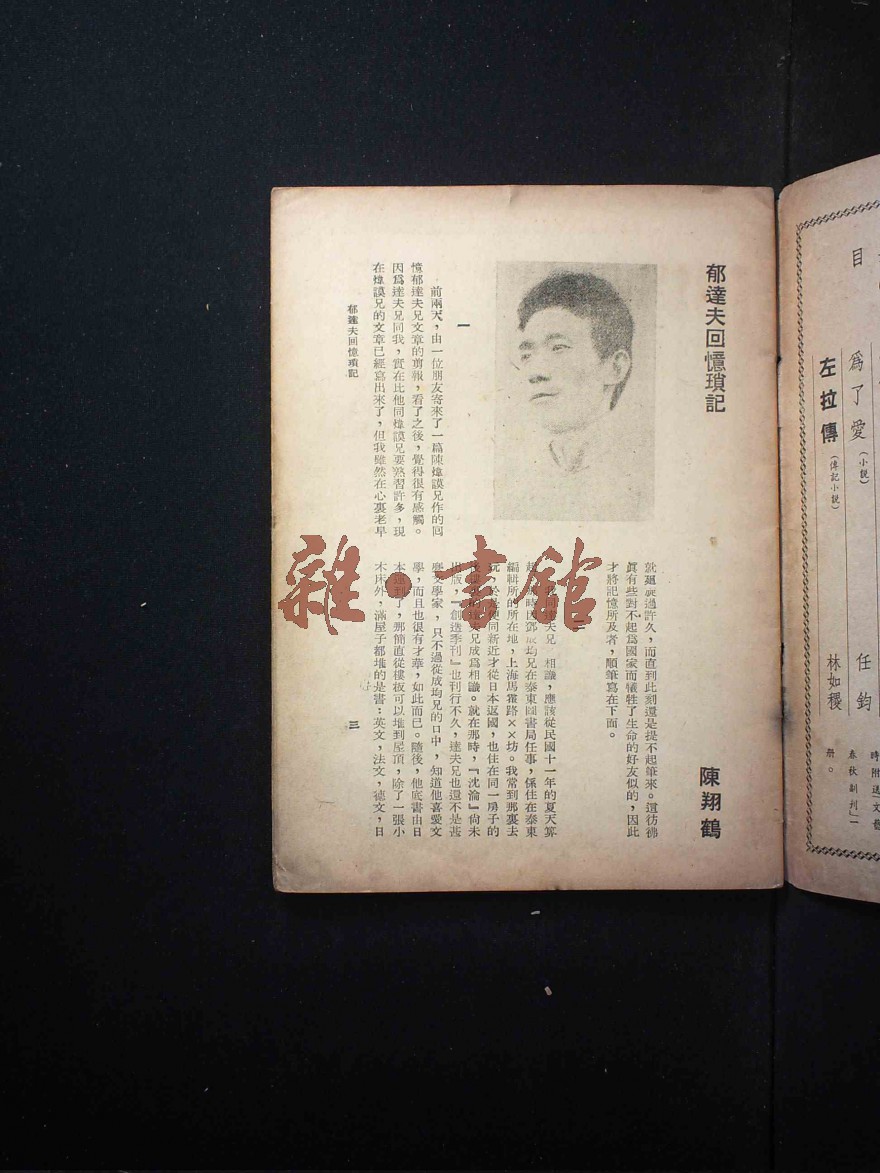 郁達夫回憶瑣記
陳翔鶴
一
前兩天，由一位朋友寄來了一篇陳煒謨兄作的回
憶郁達夫兄文章的剪報，看了之後，覺得很有感觸。
因爲達夫兄同我，實在比他同煒謨兄要熟習許多，現
在煒謨兄的文章已經寫出來了，但我雖然在心裏老早
就
旋過許久，而直到此刻還是提不起筆來。這彷彿
眞有些對不起爲國家而犧牲了生命的好友似的，因此
才將記憶所及者，順筆寫在下面。
二
同達夫兄相識，應該從民國十一年的夏天算
時因鄧成均兄在泰東圖書局任事，係住在泰東
編輯所的所在地，上海馬霍路××坊。我常到那裏去
玩，於是便同新近才從日本返國，也住在同一房子的
達夫兄成爲相識。就在那時，『沈淪』尙未
出版，『創造季刊』也刊行不久，達夫兄也還不是甚
麽文學家，只不過從成均兄的口中，知道他喜愛文
學，而且也很有才華，如此而已。隨後，他底書由日
本運到了，那簡直從樓板可以堆到屋頂，除了一張小
木床外，滿屋子都堆的是書：英文，法文，德文，日
郁達夫回憶瑣記
三
雜·書館
目
爲了愛（小說）
任鈞
左拉傳（傳記小說）
林如稷
時附送「文藝
春秋副刊」一
册。